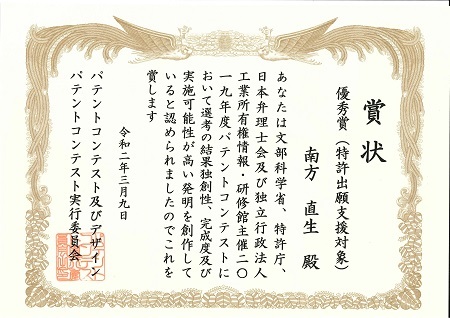 賞状
優秀賞（特許出願支援対象）
南方 直生 殿
あなたは文部科学省、特許庁、
日本弁理士会及び独立行政法人
工業所有権情報・研修館主催二〇
一九年度パテントコンテストに
おいて選考の結果独創性、完成度及び
実施可能性が高い発明を創作して
いると認められましたのでこれを
賞します
令和二年三月九日
パテントコンテスト及びデザイン
パテントコンテスト実行委員会